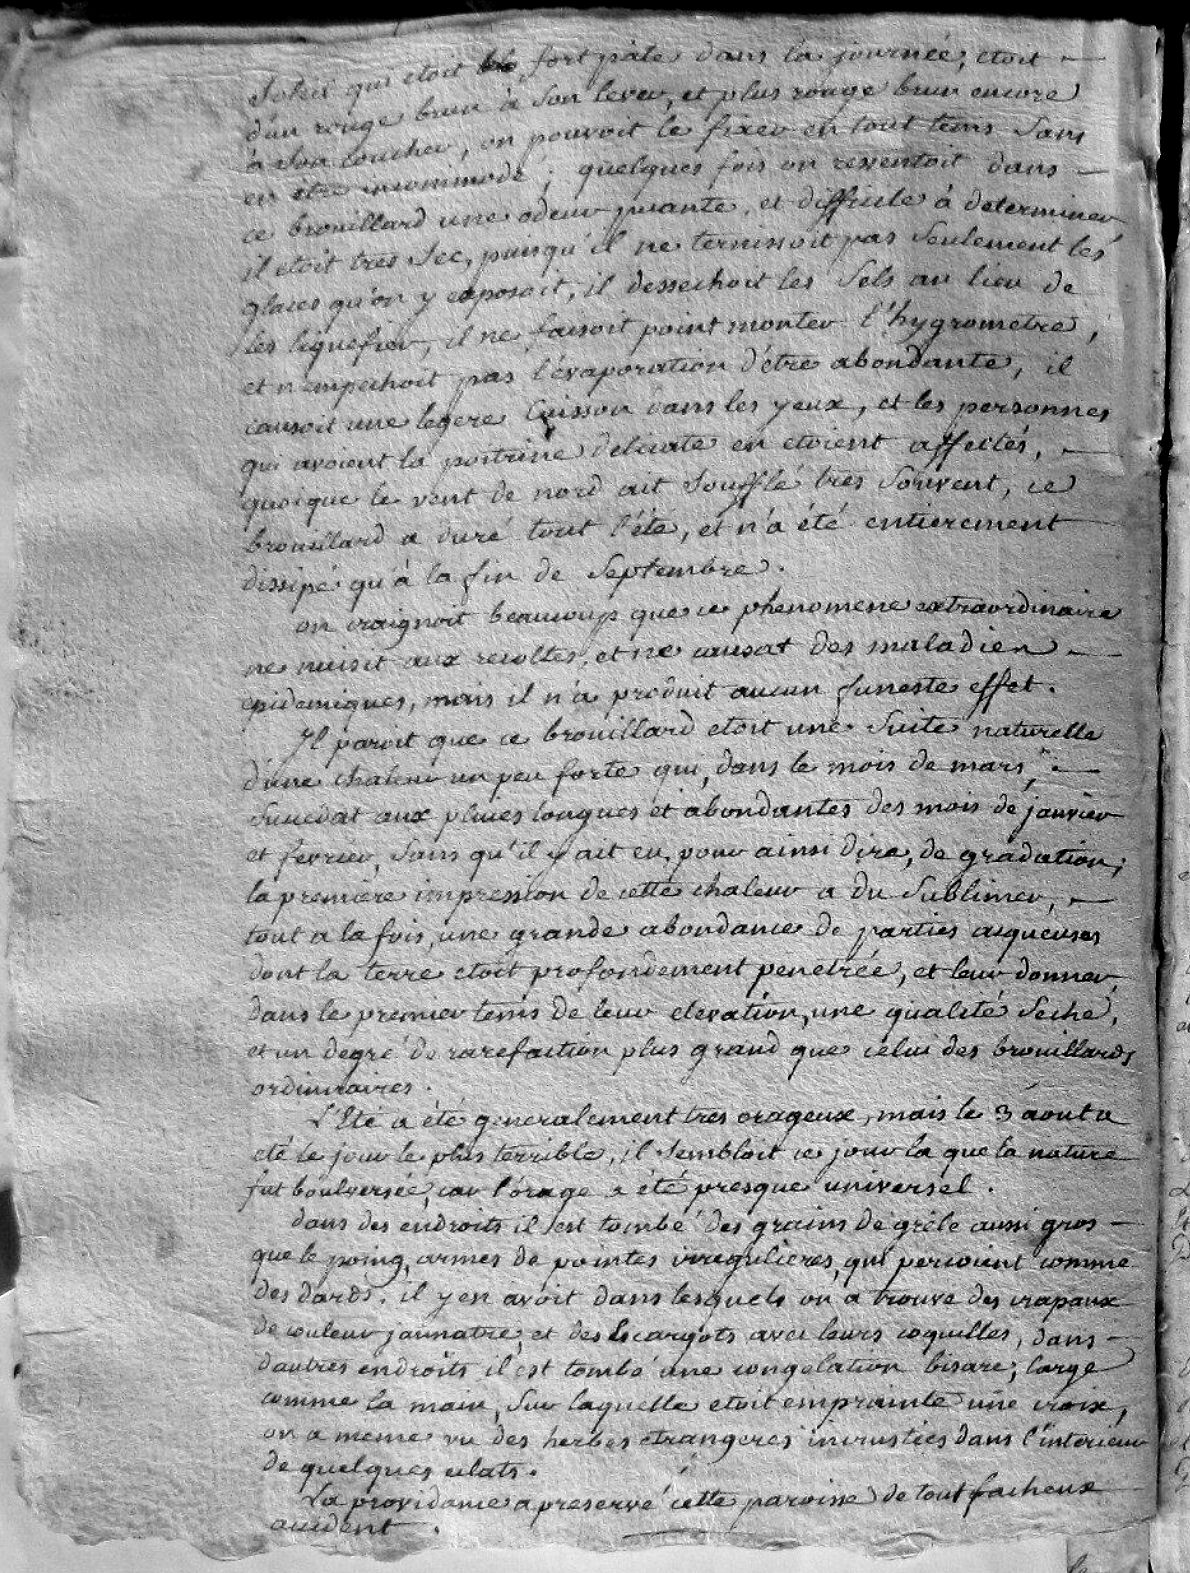 Soleil qui etoit fort pâle dans la journée, etoit —
d'un rouge brun à Son lever, et plus rouge brun encore
à Son coucher, on pouvoit le fixer en tout tems Sans
en etre incommodé ; quelques fois on ressentoit dans —
ce brouillard une odeur puante, et difficile à determiner
il etoit tres Sec, puisqu'il ne ternissoit pas Seulement les
glaces qu'on y exposoit, il dessechoit les Sels au lieu de
les liquefier, il ne faisoit point monter l'hygrometre,
et n'empechoit pas l'évaporation d'être abondante, il
causoit une legere Cuisson dans les yeux, et les personnes
qui avoient la poitrine delicate en etoient affectés, —
quoique le vent de nord ait Soufflé tres Souvent, ce
brouillard a duré tout l'été, et n'a été entierement
dissipé qu'à la fin de Septembre.
on craignoit beaucoup que ce phenomene extraordinaire
ne nuisit aux recoltes, et ne causat des maladies —
epidemiques, mais il n'a produit aucun funeste effet.
Il paroit que ce brouillard etoit une Suite naturelle
d'une chaleur un peu forte qui, dans le mois de mars, —
Succedat aux pluies longues et abondantes des mois de janvier
et fevrier, Sans qu'il y ait eu, pour ainsi dire, de gradation;
la premiere impression de cette chaleur a du Sublimer, —
tout a la fois, une grande abondance de parties aqueuses
dont la terre etoit profondement penetrée, et leur donner,
dans le premier tems de leur elevation, une qualité Seche,
et un degré de rarefaction plus grand que celui des brouillards
ordinaires.
L'Eté a été generalement tres orageux, mais le 3 aout a
eté le jour le plus terrible, il Sembloit ce jour la que la nature
fut boulversée, car l'orage a été presque universel.
dans des endroits il est tombé des grains de grêle aussi gros —
que le poing, armes de pointes irregulieres, qui percoient comme
des dards. il y en avoit dans lesquels on a trouvé des crapaux
de couleur jaunatre, et des Escargots avec leurs coquilles, dans —
d'autres endroits il est tombé une congelation bisare, large
comme la main, Sur laquelle etoit emprainte une croix,
on a meme vu des herbes etrangeres incrustées dans l'interieur
de quelques eclats.
La providance a preservé cette paroisse de tout facheux
accident.